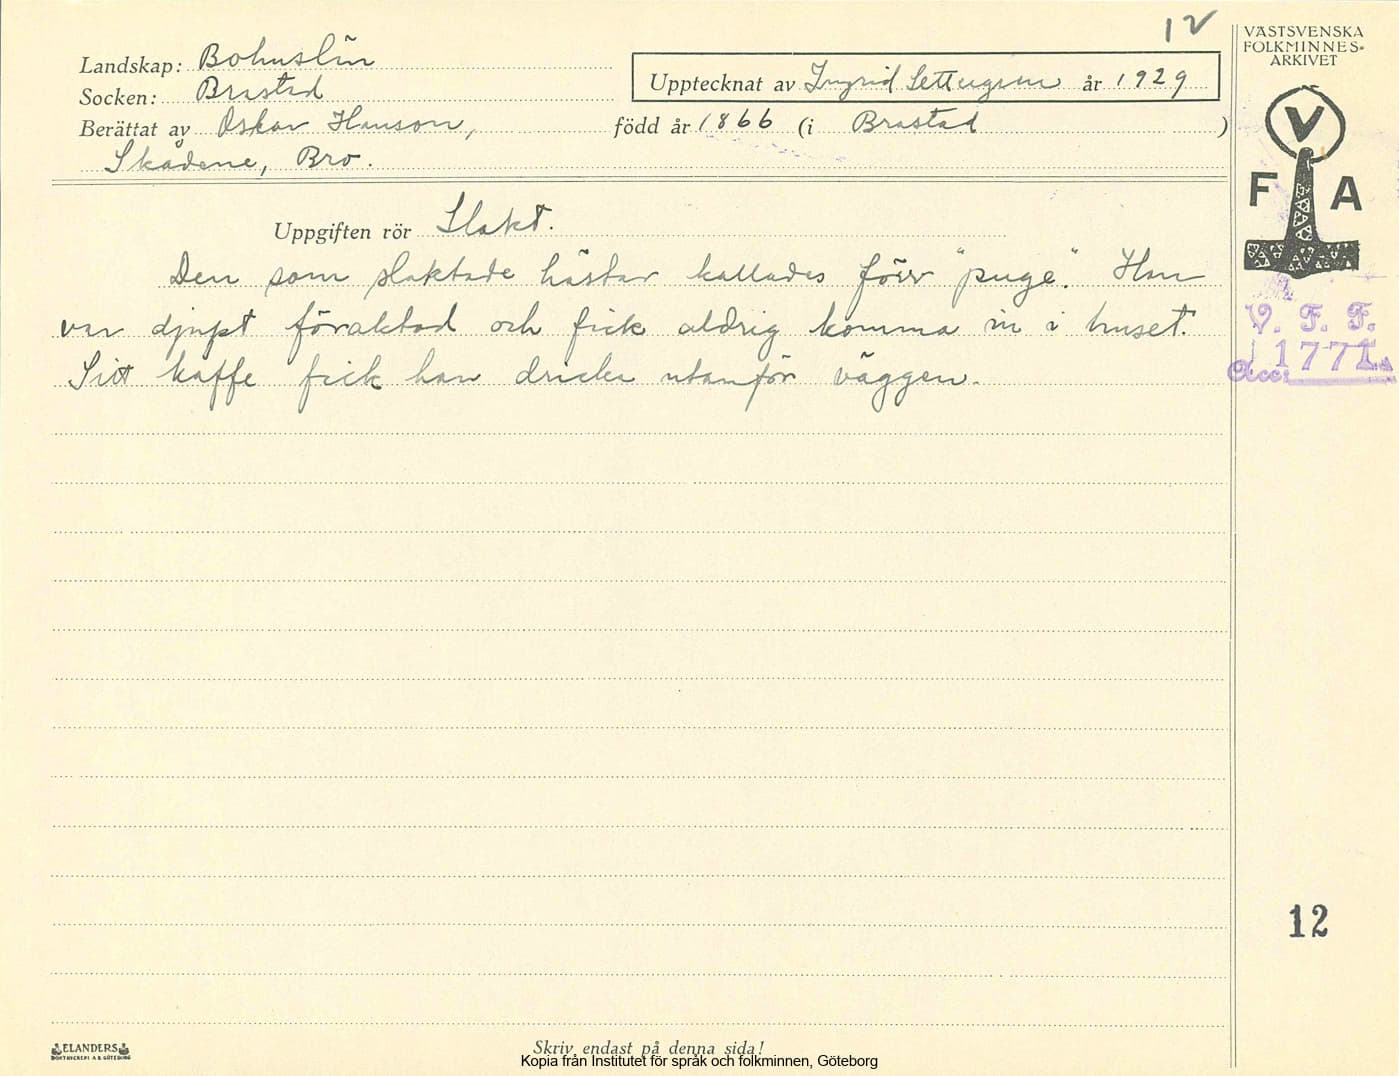 12
VÄSTSVENSKA
FOLKMINNES-
ARKIVET
Landskap: Bohuslän
Upptecknat av Ingrid Settergren år 1929
Socken: Brastad
Berättat av Oskar Hanson, född år 1866 (i Brastad)
Skådene, Bro.
V
F A
Uppgiften rör Slakt.
Den som slaktade hästar kallades förr "puge". Han
var djupt föraktad och fick aldrig komma in i huset.
Sitt kaffe fick han dricka utanför väggen.
V. F. F.
1771
Acc:
12
ELANDERS
BOKTRYCKERI A.B. GÖTEBORG
Skriv endast på denna sida!
Kopia från Institutet för språk och folkminnen, Göteborg